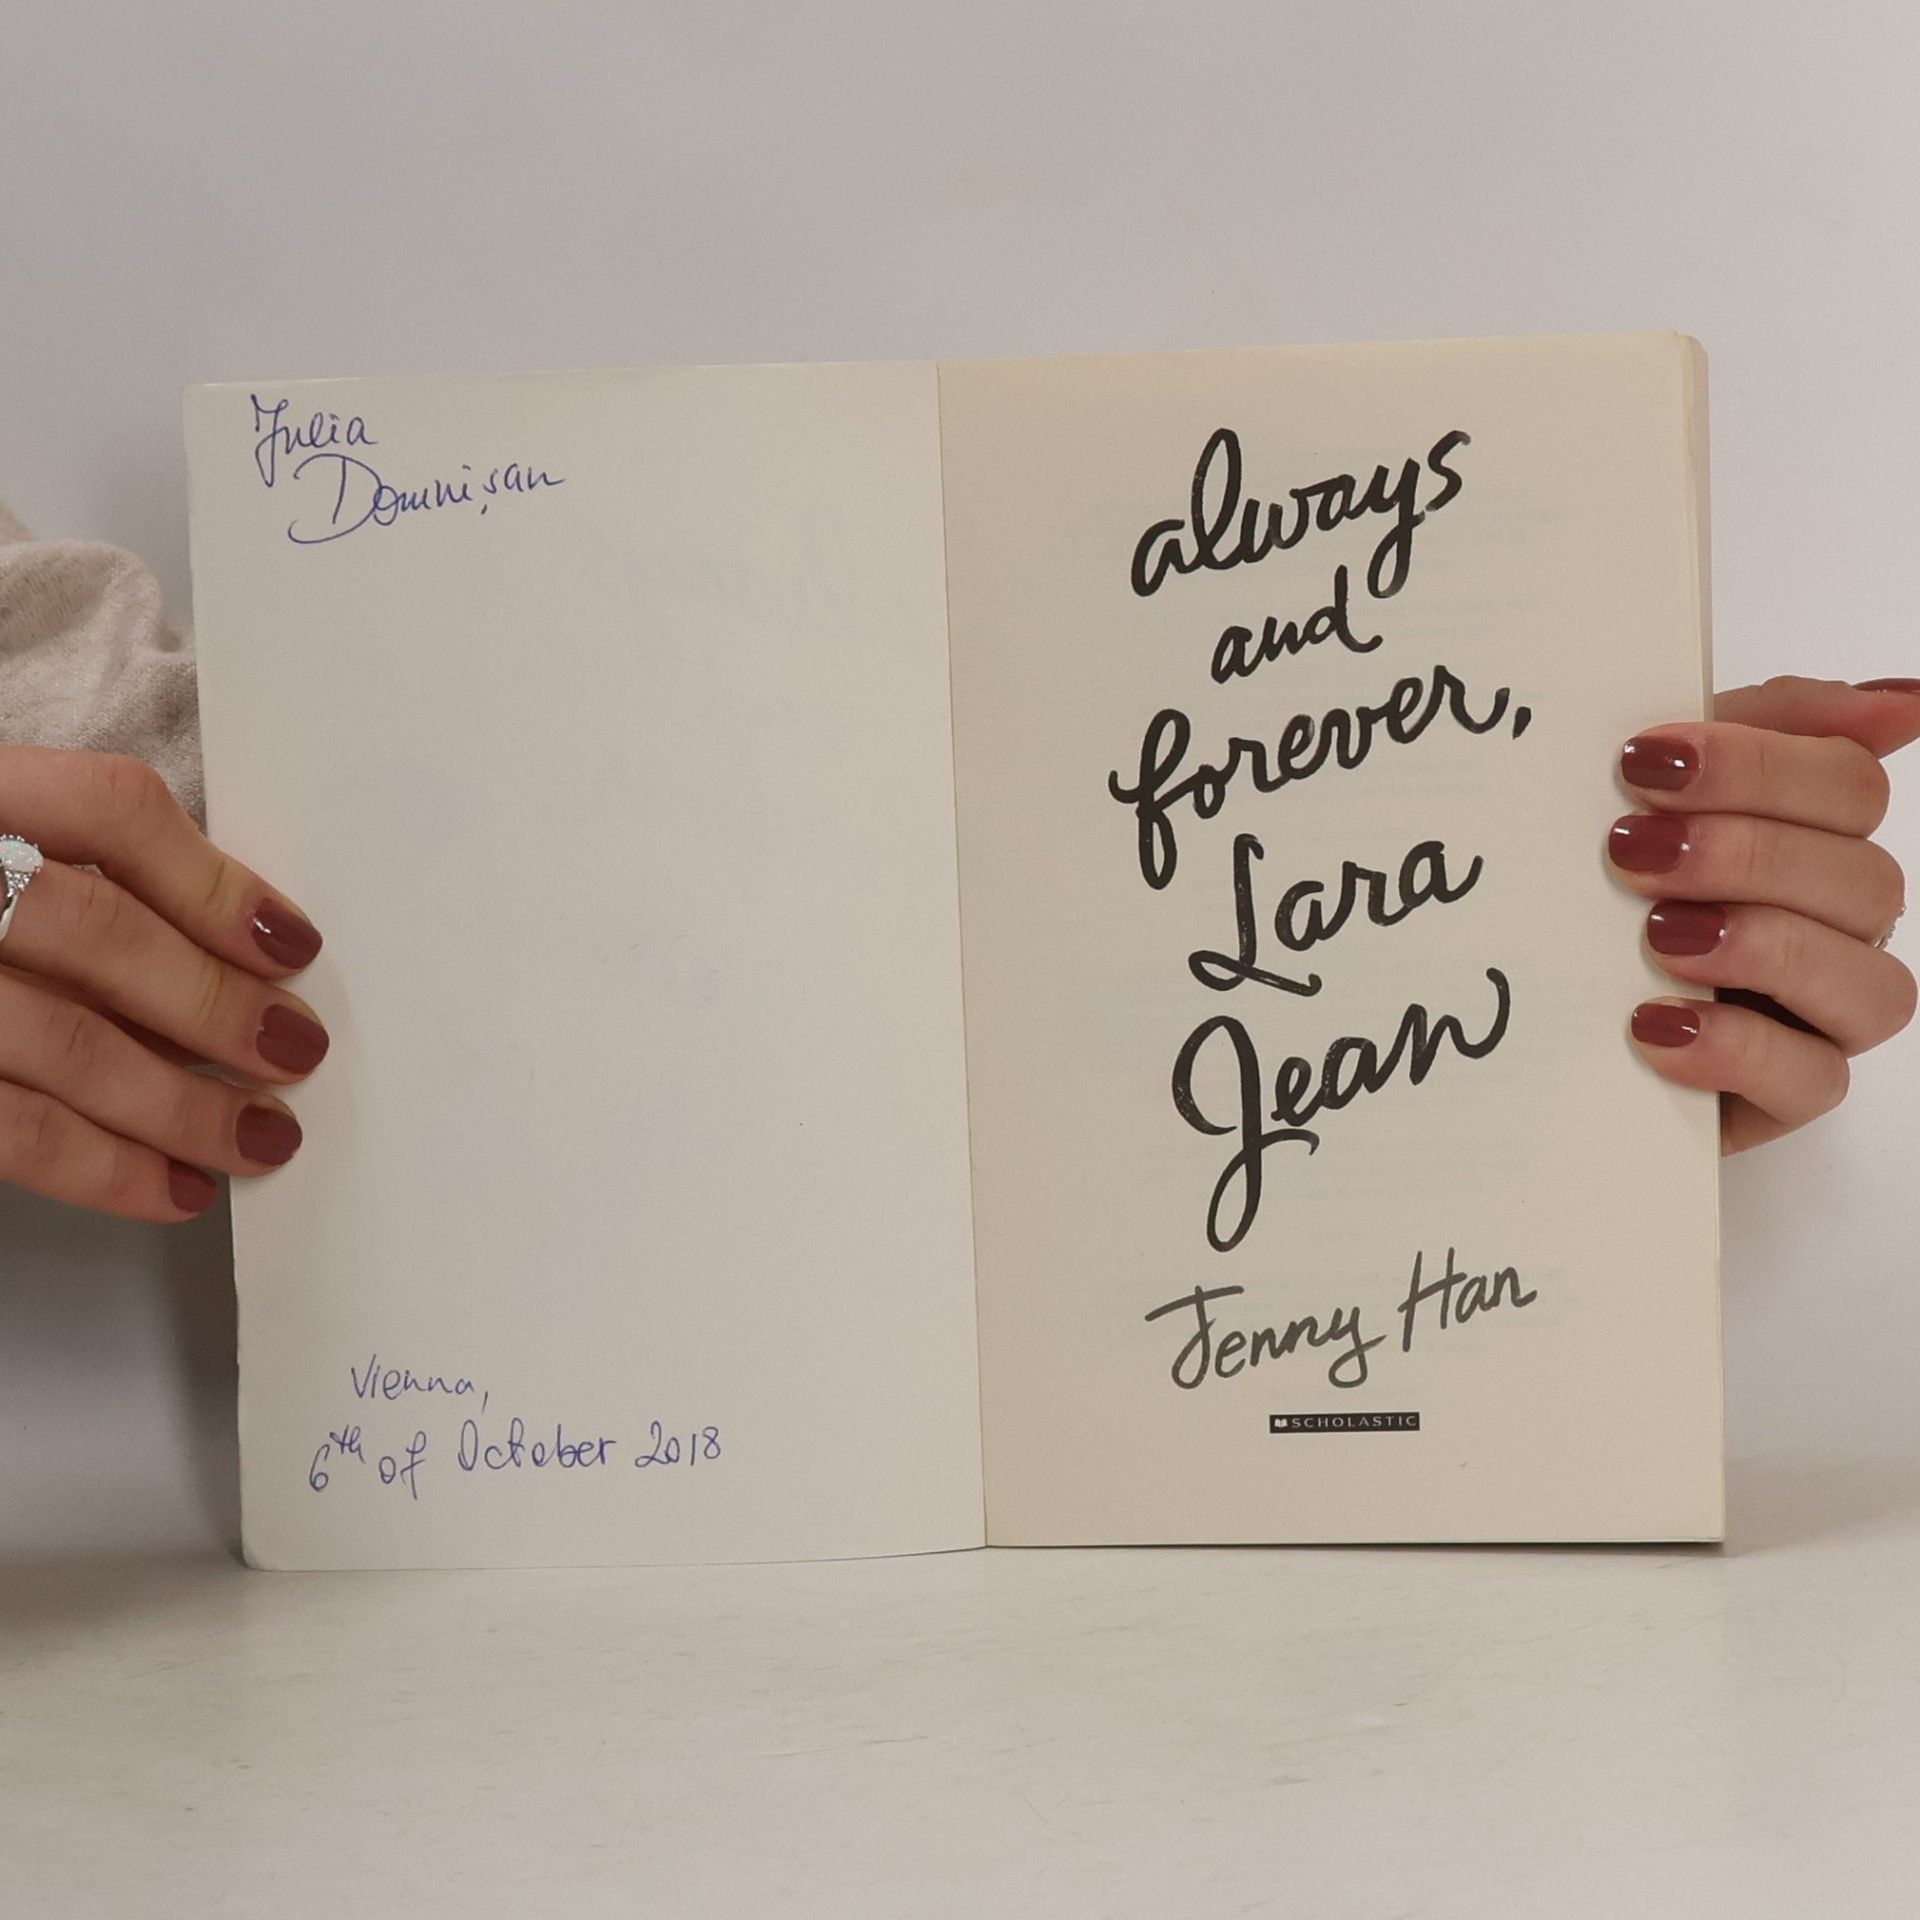 Julia
Domnișan
Vienna,
6th of October 2018
always
and
forever,
Lara
Jean
Jenny Han
SCHOLASTIC